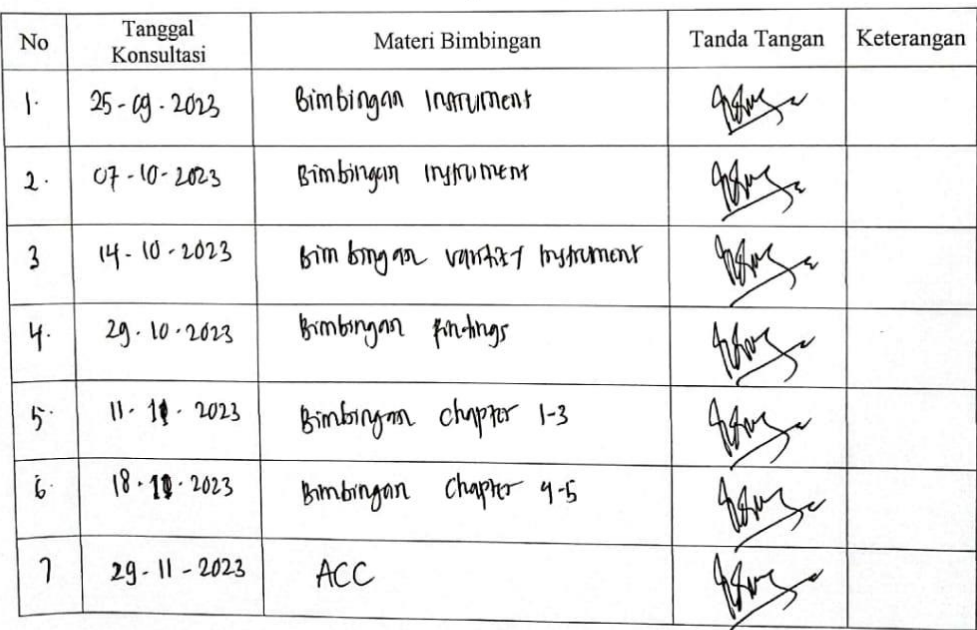 No Tanggal Konsultasi Materi Bimbingan Tanda Tangan Keterangan
1. 25-09-2023 Bimbingan Instrument
2. 07-10-2023 Bimbingan Instrument
3 14-10-2023 Bimbingan Instrument
4. 29-10-2023 Bimbingan findings
5. 11-11-2023 Bimbingan chapter 1-3
6. 18-11-2023 Bimbingan Chapter 4-5
7 29-11-2023 ACC